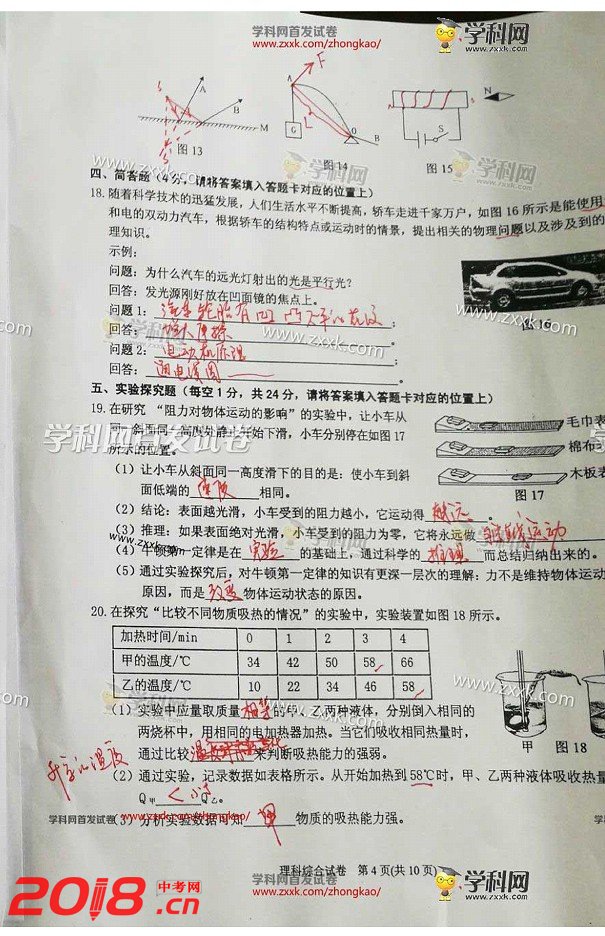 学科网首发试卷
www.zxxk.com/zhongkao/
学科网
www.zxxk.com
F
A
B
M
图13
A
G
L
O
B
图14
N
S
图15
四、简答题(4分，请将答案填入答题卡对应的位置上)
18.随着科学技术的迅猛发展，人们生活水平不断提高，轿车走进千家万户，如图16所示是能使用
和电的双动力汽车，根据轿车的结构特点或运动时的情景，提出相关的物理问题以及涉及到的
理知识。
示例：
问题：为什么汽车的远光灯射出的光是平行光？
回答：发光源刚好放在凹面镜的焦点上。
问题1：汽车轮胎有凹凸不平的花纹；
回答：增大摩擦；
问题2：电动机原理；
回答：通电线圈。
www.zxxk.com
图16
www.zxxk.com
五、实验探究题(每空1分，共24分，请将答案填入答题卡对应的位置上)
19.在研究“阻力对物体运动的影响”的实验中，让小车从
同一斜面同一高度处静止开始下滑，小车分别停在如图17
所示的位置。
学科网首发试卷
毛巾表
棉布
木板表
图17
(1)让小车从斜面同一高度滑下的目的是：使小车到斜
面低端的速度相同。
(2)结论：表面越光滑，小车受到的阻力越小，它运动得越远。
(3)推理：如果表面绝对光滑，小车受到的阻力为零，它将永远做匀速直线运动
www.zxxk.com
(4)牛顿第一定律是在实验的基础上，通过科学的推理而总结归纳出来的。
(5)通过实验探究后，对牛顿第一定律的知识有更深一层次的理解：力不是维持物体运动
原因，而是改变物体运动状态的原因。
20.在探究“比较不同物质吸热的情况”的实验中，实验装置如图18所示。
加热时间/min 0 1 2 3 4
甲的温度/℃ 34 42 50 58 66
乙的温度/℃ 10 22 34 46 58
www.zxxk.com
学科网
www.zxxk.com
甲 图18
(1)实验中应量取质量相等的甲、乙两种液体，分别倒入相同的
两烧杯中，用相同的电加热器加热。当它们吸收相同热量时，
通过比较来判断吸热能力的强弱。
升高的温度
(2)通过实验，记录数据如表格所示。从开始加热到58℃时，甲、乙两种液体吸收热量
Q甲<Q乙。
学科网首发试卷 www.zxxk.com/zhongkao/
(3)分析实验数据可知甲物质的吸热能力强。
理科综合试卷 第4页(共10页)
2018中考网.cn
学科网首发试卷
www.zxxk.com/zhongkao/
学科网
www.zxxk.com